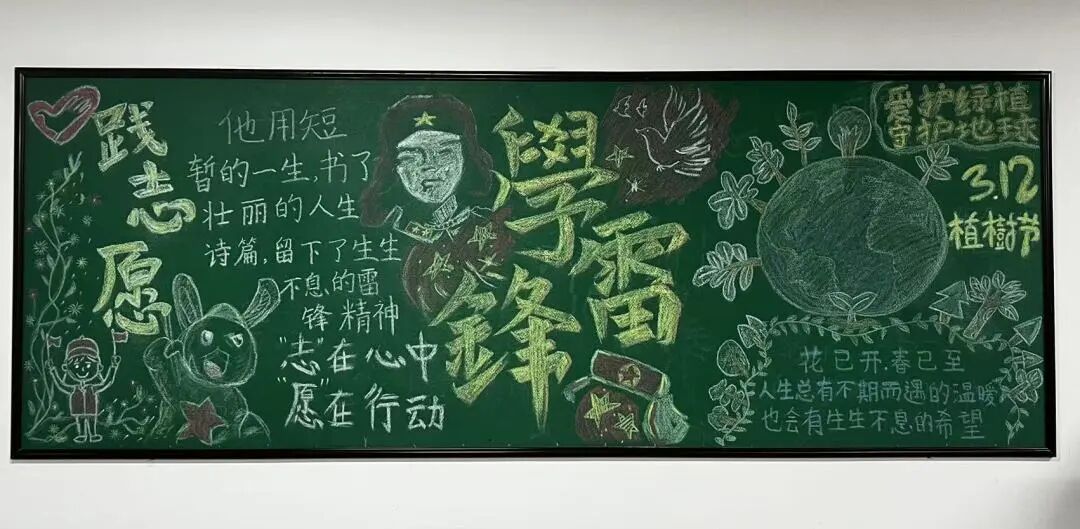 践志愿
他用短
暂的一生,书了
壮丽的人生
诗篇,留下了生生
不息的雷
锋精神
"志"在心中
"愿"在行动
學雷鋒
爱护绿植
守护地球
3.12
植樹节
花已开,春已至
人生总有不期而遇的温暖
也会有生生不息的希望